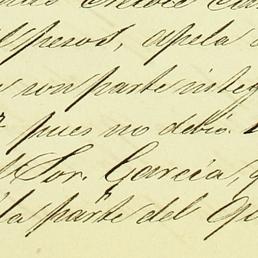 pesos, apela
son parte integ
pues no debió.
Sor. García, q
la parte del Qu